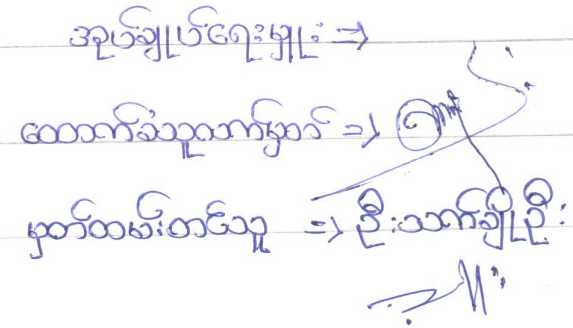 အုပ်ချုပ်ရေးမှူး ⇒
ထောက်ခံသူလက်မှတ် ⇒
မှတ်တမ်းတင်သူ ⇒ ဦးသက်ချိုဦး